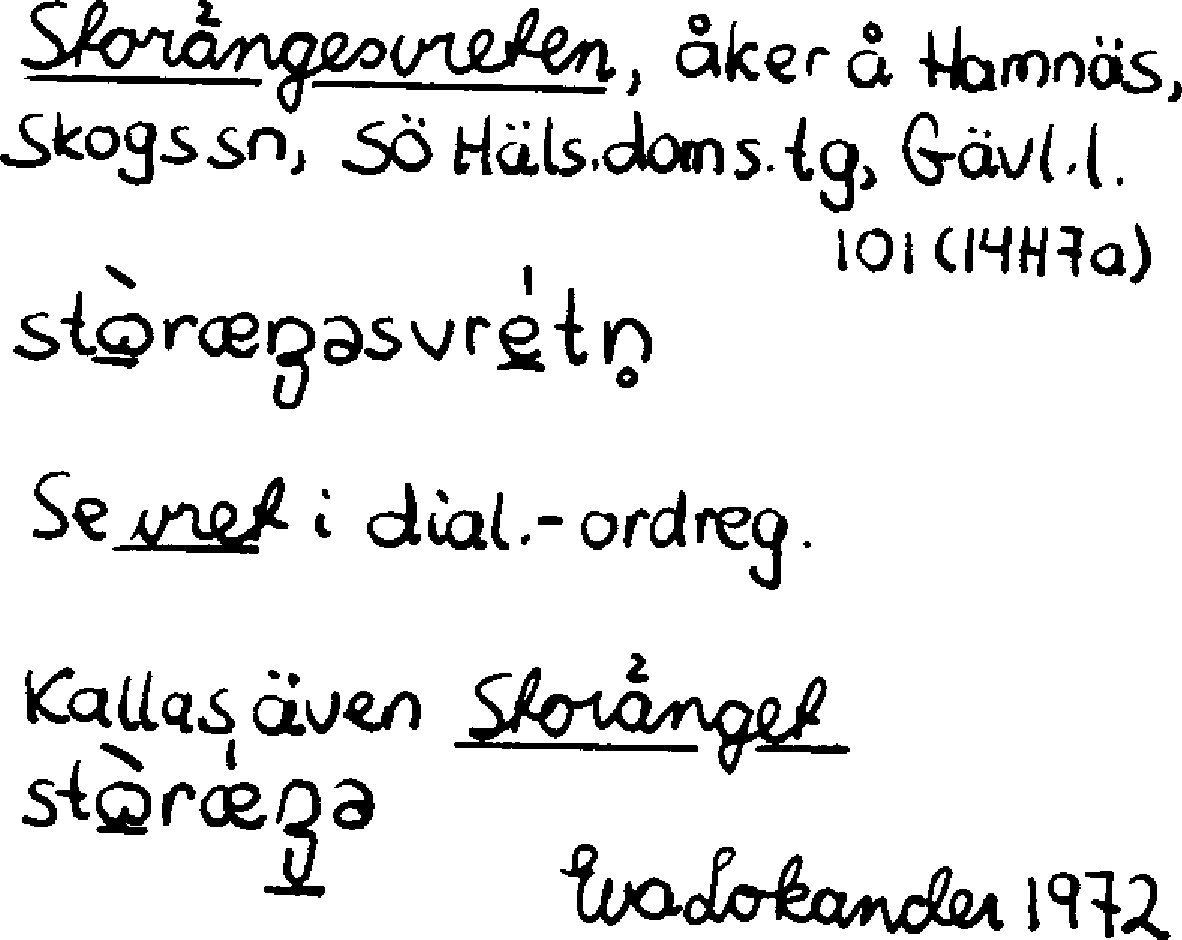 Storängesvreten, åker å Hamnäs,
Skogs sn, Sö Häls.doms.tg, Gävl.l.
101 (14H7a)
stὼ̱ræŋəsvré̱tn̥
Se vret i dial.-ordreg.
Kallas även Storänget
stὼ̱rǽŋə
Eva Lokander 1972